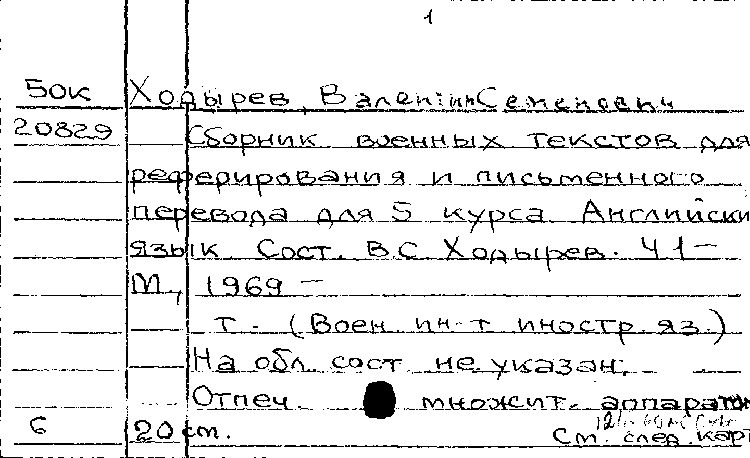 1
50к Ходырев, Валентин Семенович
20829 Сборник военных текстов для
реферирования и письменного
перевода для 5 курса. Английски
язык. Сост. В.С. Ходырев. Ч 1 –
М., 1969 –
т. (Воен. ин-т иностр. яз.)
На обл. сост. не указан.
Отпеч. множит. аппаратом
6 20 см. См. след. карт